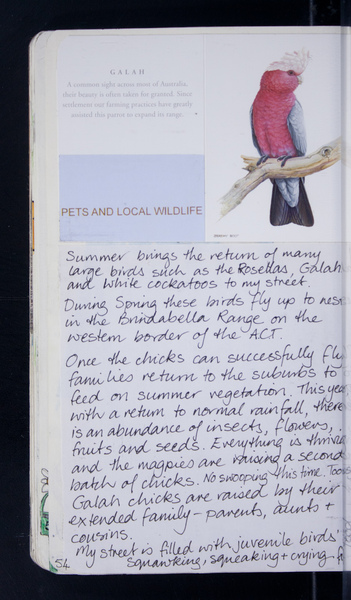 GALAH
A common sight across most of Australia,
their beauty is often taken for granted. Since
settlement our farming practices have greatly
assisted this parrot to expand its range.
PETS AND LOCAL WILDLIFE
Summer brings the return of many
large birds such as the Rosellas, Galah
and White cockatoos to my street.
During Spring these birds fly up to nest
in the Brindabella Range on the
western border of the ACT.
Once the chicks can successfully fly
families return to the suburbs to
feed on summer vegetation. This year
with a return to normal rainfall, there
is an abundance of insects, flowers,
fruits and seeds. Everything is thriving
and the magpies are raising a second
batch of chicks. No swooping this time.
Galah chicks are raised by their
extended family - parents, aunts +
cousins.
My street is filled with juvenile birds'
squawking, squeaking + crying
54